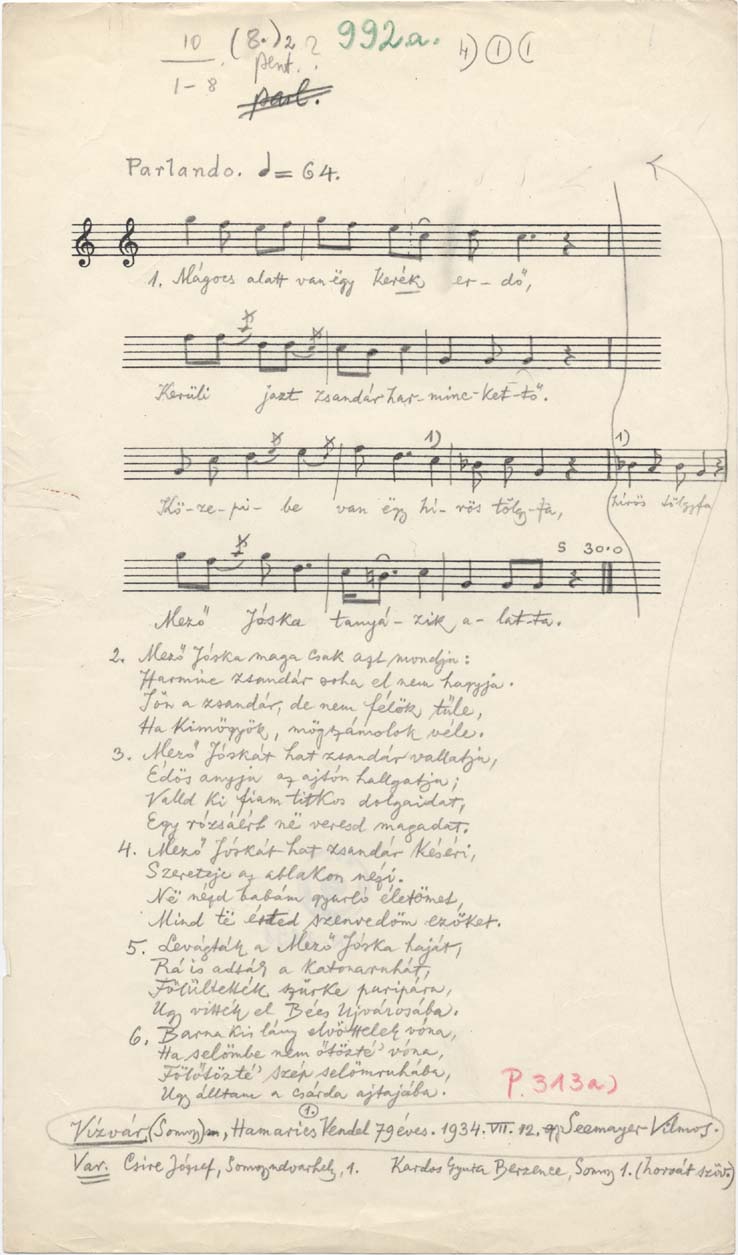 10 (8.)2 ? 992a. 4) 1 (
1-8 pent. ?
parl.
Parlando. = 64.
1. Mágocs alatt van ëgy kerék er-dő,
Kerüli jazt zsandár har-minc-ket-tő.
1) 1)
Kö-ze-pi-be van ëgy hi-rös tölg-fa, hírös tölgyfa
S 30.0
Mező Jóska tanyá-zik a-lat-ta.
2. Mező Jóska maga csak azt mondja:
Harminc zsandár soha el nem hagyja.
Jön a zsandár, de nem félök tűle,
Ha kimögyök, mögszámolok véle.
3. Mező Jóskát hat zsandár vallatja,
Édös anyja az ajtón hallgatja;
Valld ki fiam titkos dolgaidat,
Egy rózsáért në veresd magadat.
4. Mező Jóskát hat zsandár késéri,
Szereteje az ablakon nézi.
Në nézd babám gyarló életömet,
Mind të érted szenvedöm ezöket.
5. Levágták a Mező Jóska haját,
Rá is adták a katonaruhát,
Fölültették szürke paripára,
Ugy vitték el Bécs Ujvárosába.
6. Barna kis lány elvöttelek vóna,
Ha selömbe nem őtözté' vóna,
Fölőtözté' szép selömruhába,
Ugy álltam a csárda ajtajába.
P. 313a)
1.
Vízvár, (Somogy) Hamarics Vendel 79 éves. 1934. VII. 12. Seemayer Vilmos.
Var. Csire József, Somogyudvarhely, 1. Kardos Gyura Berzence, Somogy 1. (horvát szöv.)